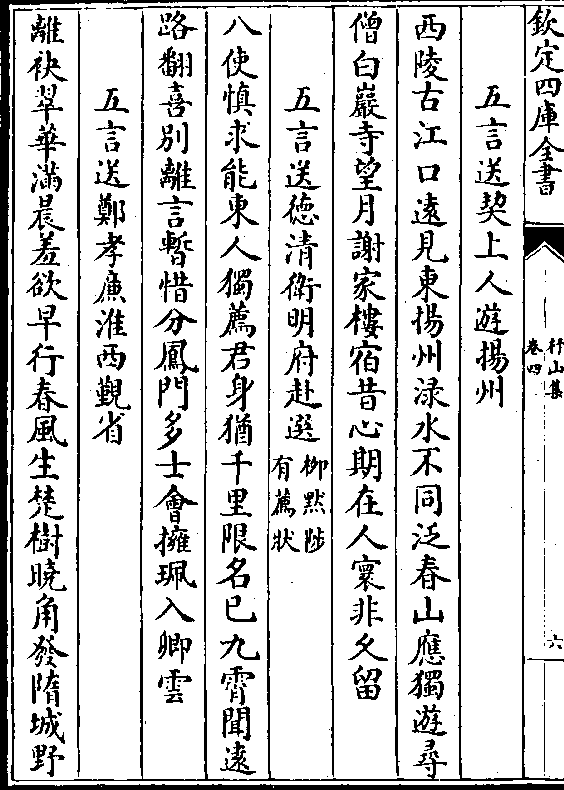 欽定四庫全書
杼山集
卷四
六
五言送契上人遊揚州
西陵古江口遠見東揚州渌水不同泛春山應獨遊尋
僧白巖寺望月謝家樓宿昔心期在人寰非久留
五言送德清衛明府赴選柳黙陟
有薦狀
八使慎求能東人獨薦君身猶千里限名已九霄聞遠
路翻喜別離言暫惜分鳳門多士會擁珮入卿雲
五言送鄭孝廉淮西覲省
離袂翠華滿晨羞欲早行春風生楚樹曉角發隋城野